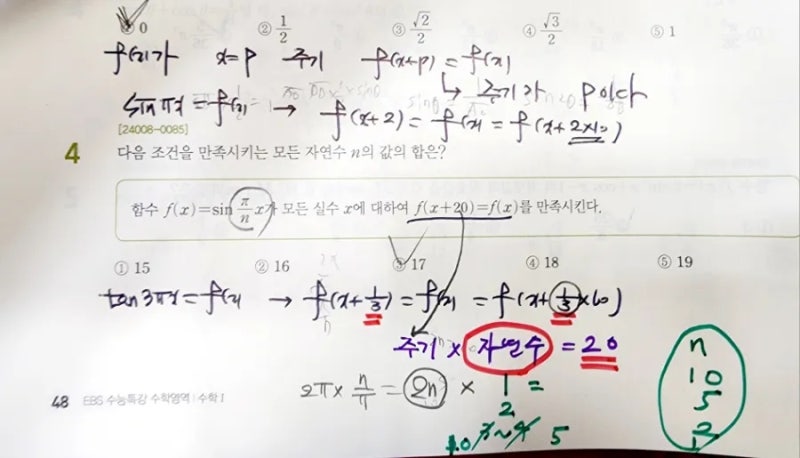 ① 0 ② 1/2 ③ √2/2 ④ √3/2 ⑤ 1
f(x)가 x=p 주기 f(x+p)=f(x)
↳ 주기가 p이다
sinπx=f(x) → f(x+2)=f(x)=f(x+2×10)
[24008-0085]
4 다음 조건을 만족시키는 모든 자연수 n의 값의 합은?
함수 f(x)=sin π/n x가 모든 실수 x에 대하여 f(x+20)=f(x)를 만족시킨다.
① 15 ② 16 ③ 17 ④ 18 ⑤ 19
tan3πx=f(x) → f(x+1/3)=f(x)=f(x+1/3×60)
주기 × 자연수 = 20
2π× n/π = 2n × 1 =
2
10 5
n
10
5
2
1
48 EBS 수능특강 수학영역 | 수학 I